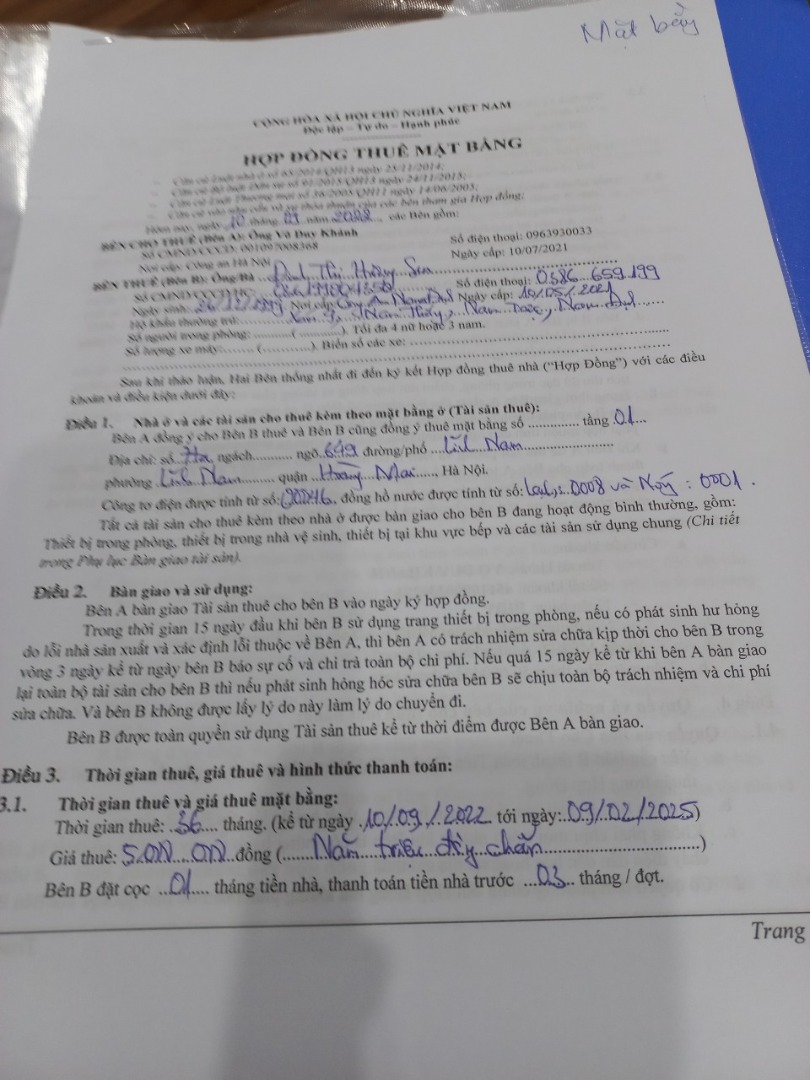 Mặt bằng
CỘNG HÒA XÃ HỘI CHỦ NGHĨA VIỆT NAM
Độc lập – Tự do – Hạnh phúc
HỢP ĐỒNG THUÊ MẶT BẰNG
- Căn cứ Luật nhà ở số 65/2014/QH13 ngày 25/11/2014;
- Căn cứ Bộ luật Dân sự số 91/2015/QH13 ngày 24/11/2015;
- Căn cứ Luật Thương mại số 36/2005/QH11 ngày 14/06/2005;
- Căn cứ vào nhu cầu và sự thỏa thuận của các bên tham gia Hợp đồng;
Hôm nay, ngày 10 tháng 09 năm 2022, các Bên gồm:
BÊN CHO THUÊ (Bên A): Ông Vũ Duy Khánh Số điện thoại: 0963930033
Số CMND/CCCD: 001097008368 Ngày cấp: 10/07/2021
Nơi cấp: Công an Hà Nội
BÊN THUÊ (Bên B): Ông/Bà Đinh Thị Hường Sen Số điện thoại: 0386 659 199
Số CMND/CCCD: Ngày cấp: 10/05/2021
Ngày sinh: 26/12/ Nơi cấp: Công An Nam Định
Hộ khẩu thường trú: Nam Định
Số người trong phòng: ...........( ............). Tối đa 4 nữ hoặc 3 nam.
Số lượng xe máy:........ (..............). Biển số các xe: ...............
Sau khi thảo luận, Hai Bên thống nhất đi đến ký kết Hợp đồng thuê nhà (“Hợp Đồng”) với các điều
khoản và điều kiện dưới đây:
Điều 1. Nhà ở và các tài sản cho thuê kèm theo mặt bằng ở (Tài sản thuê):
Bên A đồng ý cho Bên B thuê và Bên B cũng đồng ý thuê mặt bằng số .............. tầng 01...
Địa chỉ: số ngách........... ngõ..649 đường/phố ...Lĩnh Nam.......
phường .Lĩnh Nam......... quận ..Hoàng..Mai....., Hà Nội.
Công tơ điện được tính từ số: 00046, đồng hồ nước được tính từ số: Lạnh: 0008 và Nóng : 0001.
Tất cả tài sản cho thuê kèm theo nhà ở được bàn giao cho bên B đang hoạt động bình thường, gồm:
Thiết bị trong phòng, thiết bị trong nhà vệ sinh, thiết bị tại khu vực bếp và các tài sản sử dụng chung (Chi tiết
trong Phụ lục Bàn giao tài sản).
Điều 2. Bàn giao và sử dụng:
Bên A bàn giao Tài sản thuê cho bên B vào ngày ký hợp đồng.
Trong thời gian 15 ngày đầu khi bên B sử dụng trang thiết bị trong phòng, nếu có phát sinh hư hỏng
do lỗi nhà sản xuất và xác định lỗi thuộc về Bên A, thì bên A có trách nhiệm sửa chữa kịp thời cho bên B trong
vòng 3 ngày kể từ ngày bên B báo sự cố và chi trả toàn bộ chi phí. Nếu quá 15 ngày kể từ khi bên A bàn giao
lại toàn bộ tài sản cho bên B thì nếu phát sinh hỏng hóc sửa chữa bên B sẽ chịu toàn bộ trách nhiệm và chi phí
sửa chữa. Và bên B không được lấy lý do này làm lý do chuyển đi.
Bên B được toàn quyền sử dụng Tài sản thuê kể từ thời điểm được Bên A bàn giao.
Điều 3. Thời gian thuê, giá thuê và hình thức thanh toán:
3.1. Thời gian thuê và giá thuê mặt bằng:
Thời gian thuê: ..36.... tháng. (kể từ ngày .10/09./.2022 tới ngày:..09/02/2025)
Giá thuê: 5.000....000..đồng (.......Năm....triệu..đồng..chẵn...............)
Bên B đặt cọc ...01.... tháng tiền nhà, thanh toán tiền nhà trước ...03.. tháng / đợt.
Trang